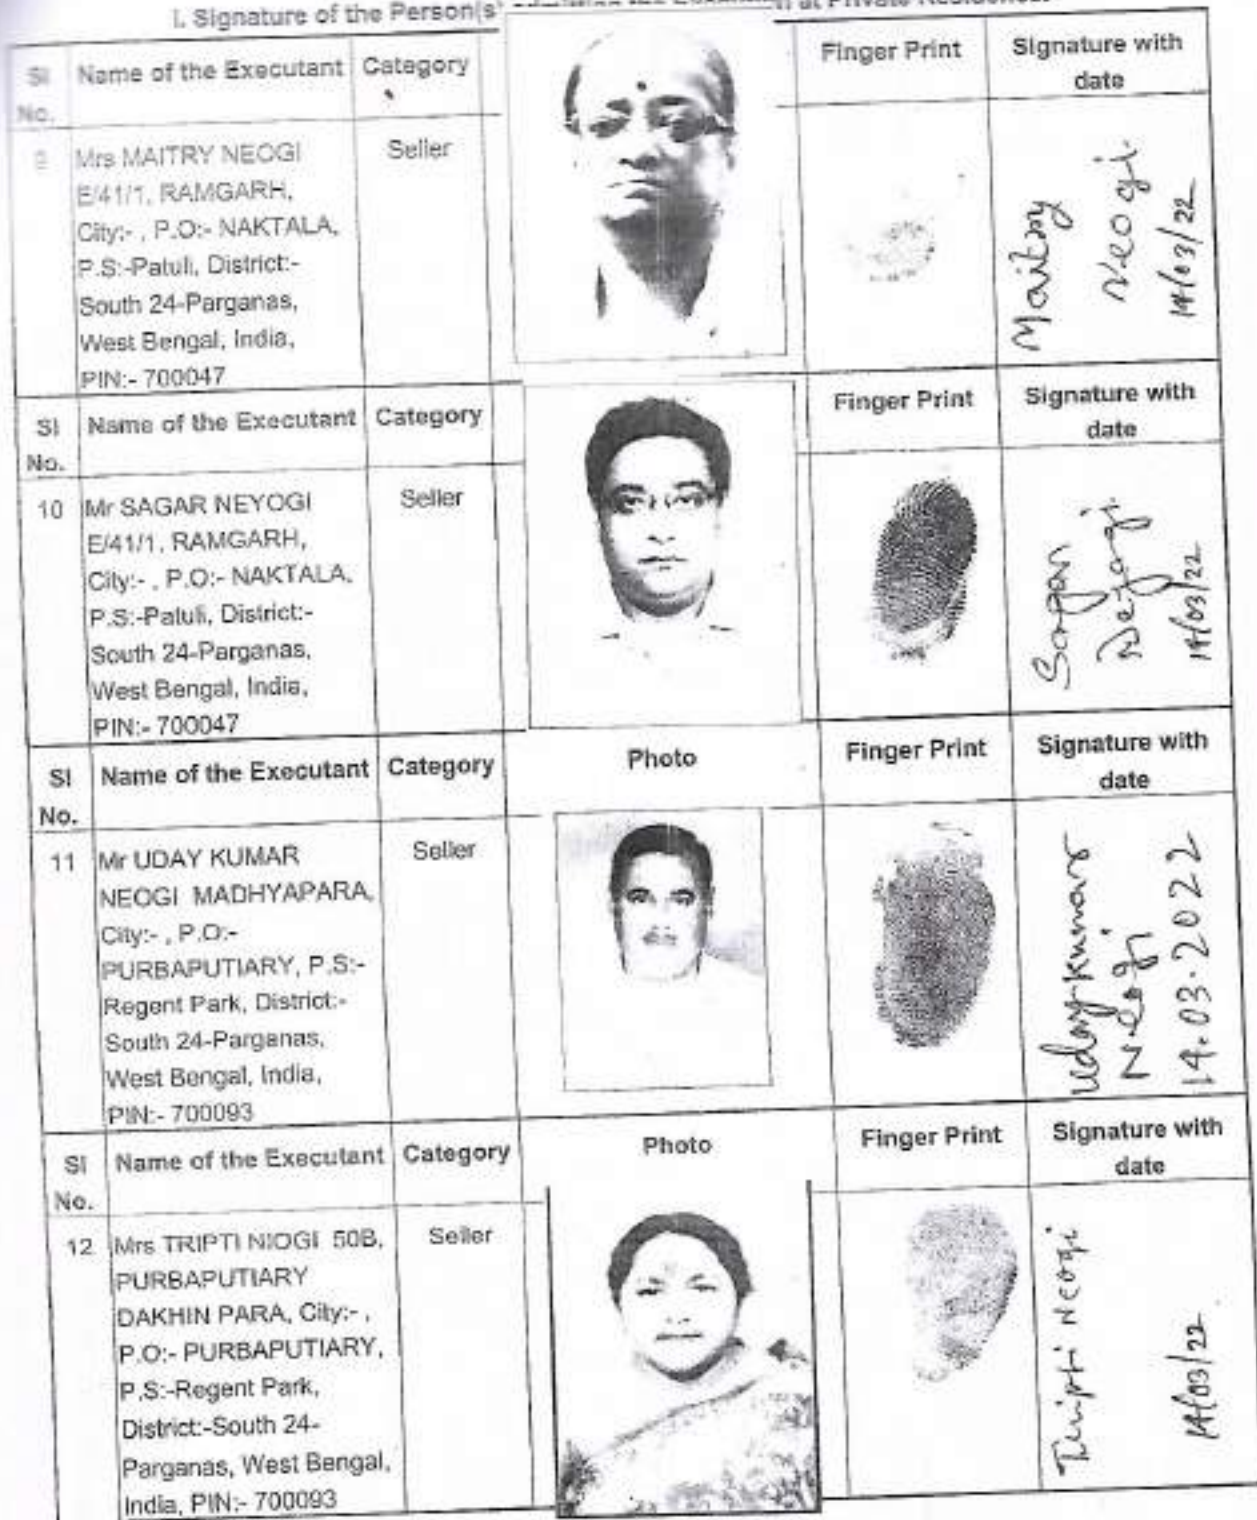 I. Signature of the Person(s) admitting the Execution at Private Residence.
Sl No. Name of the Executant Category Finger Print Signature with date
9 Mrs MAITRY NEOGI Seller
E/41/1, RAMGARH,
City:- , P.O:- NAKTALA,
P.S:-Patuli, District:-
South 24-Parganas,
West Bengal, India,
PIN:- 700047
Maitry
Neogi
14/03/22
Sl No. Name of the Executant Category Finger Print Signature with date
10 Mr SAGAR NEYOGI Seller
E/41/1, RAMGARH,
City:- , P.O:- NAKTALA,
P.S:-Patuli, District:-
South 24-Parganas,
West Bengal, India,
PIN:- 700047
Sagar
Neyogi
14/03/22
Sl No. Name of the Executant Category Photo Finger Print Signature with date
11 Mr UDAY KUMAR Seller
NEOGI MADHYAPARA,
City:- , P.O:-
PURBAPUTIARY, P.S:-
Regent Park, District:-
South 24-Parganas,
West Bengal, India,
PIN:- 700093
Uday Kumar
Neogi
14.03.2022
Sl No. Name of the Executant Category Photo Finger Print Signature with date
12 Mrs TRIPTI NIOGI 50B, Seller
PURBAPUTIARY
DAKHIN PARA, City:- ,
P.O:- PURBAPUTIARY,
P.S:-Regent Park,
District:-South 24-
Parganas, West Bengal,
India, PIN:- 700093
Tripti Neogi
14/03/22